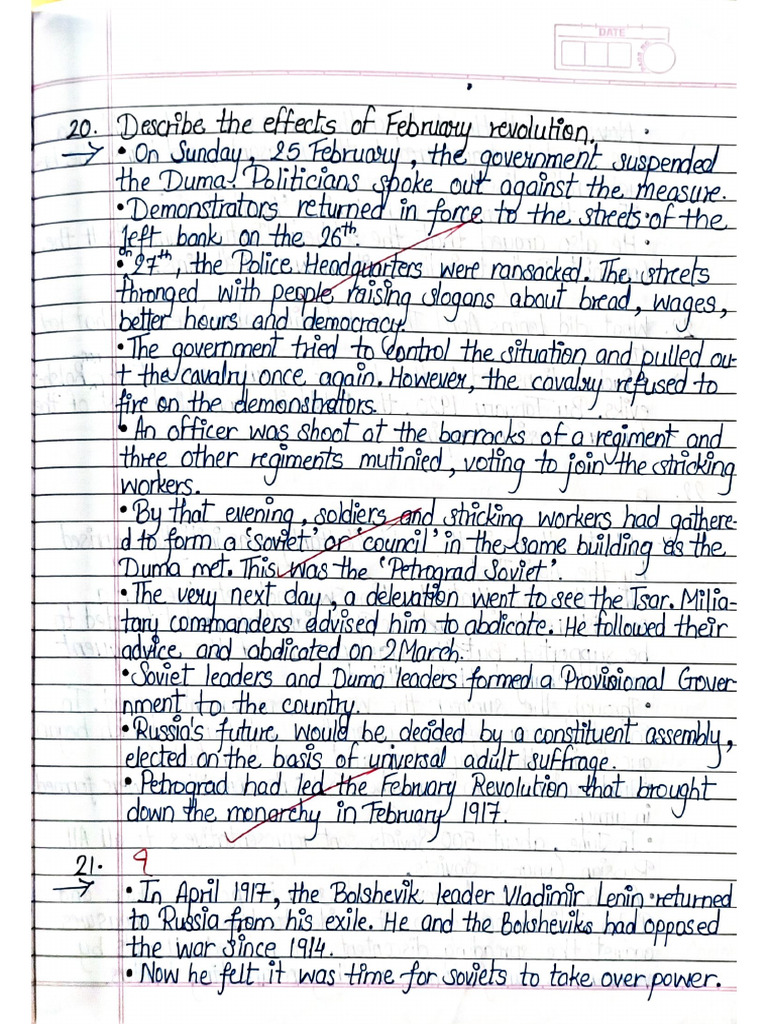 DATE
20. Describe the effects of February revolution.
→ • On Sunday, 25 February, the government suspended
the Duma. Politicians spoke out against the measure.
• Demonstrators returned in force to the streets of the
left bank on the 26th.
• on 27th, the Police Headquarters were ransacked. The streets
thronged with people raising slogans about bread, wages,
better hours and democracy.
• The government tried to control the situation and pulled ou-
t the cavalry once again. However, the cavalry refused to
fire on the demonstrators.
• An officer was shoot at the barracks of a regiment and
three other regiments mutinied, voting to join the stricking
workers.
• By that evening, soldiers and stricking workers had gathere-
d to form a 'soviet' or 'council' in the same building as the
Duma met. This was the 'Petrograd Soviet'.
• The very next day, a delevation went to see the Tsar. Milia-
tary commanders advised him to abdicate. He followed their
advice and abdicated on 2 March.
• Soviet leaders and Duma leaders formed a Provisional Gover-
nment to the country.
• Russia's future would be decided by a constituent assembly,
elected on the basis of universal adult suffrage.
• Petrograd had led the February Revolution that brought
down the monarchy in February 1917.
21. 9
→ • In April 1917, the Bolshevik leader Vladimir Lenin returned
to Russia from his exile. He and the Bolsheviks had opposed
the war since 1914.
• Now he felt it was time for soviets to take over power.